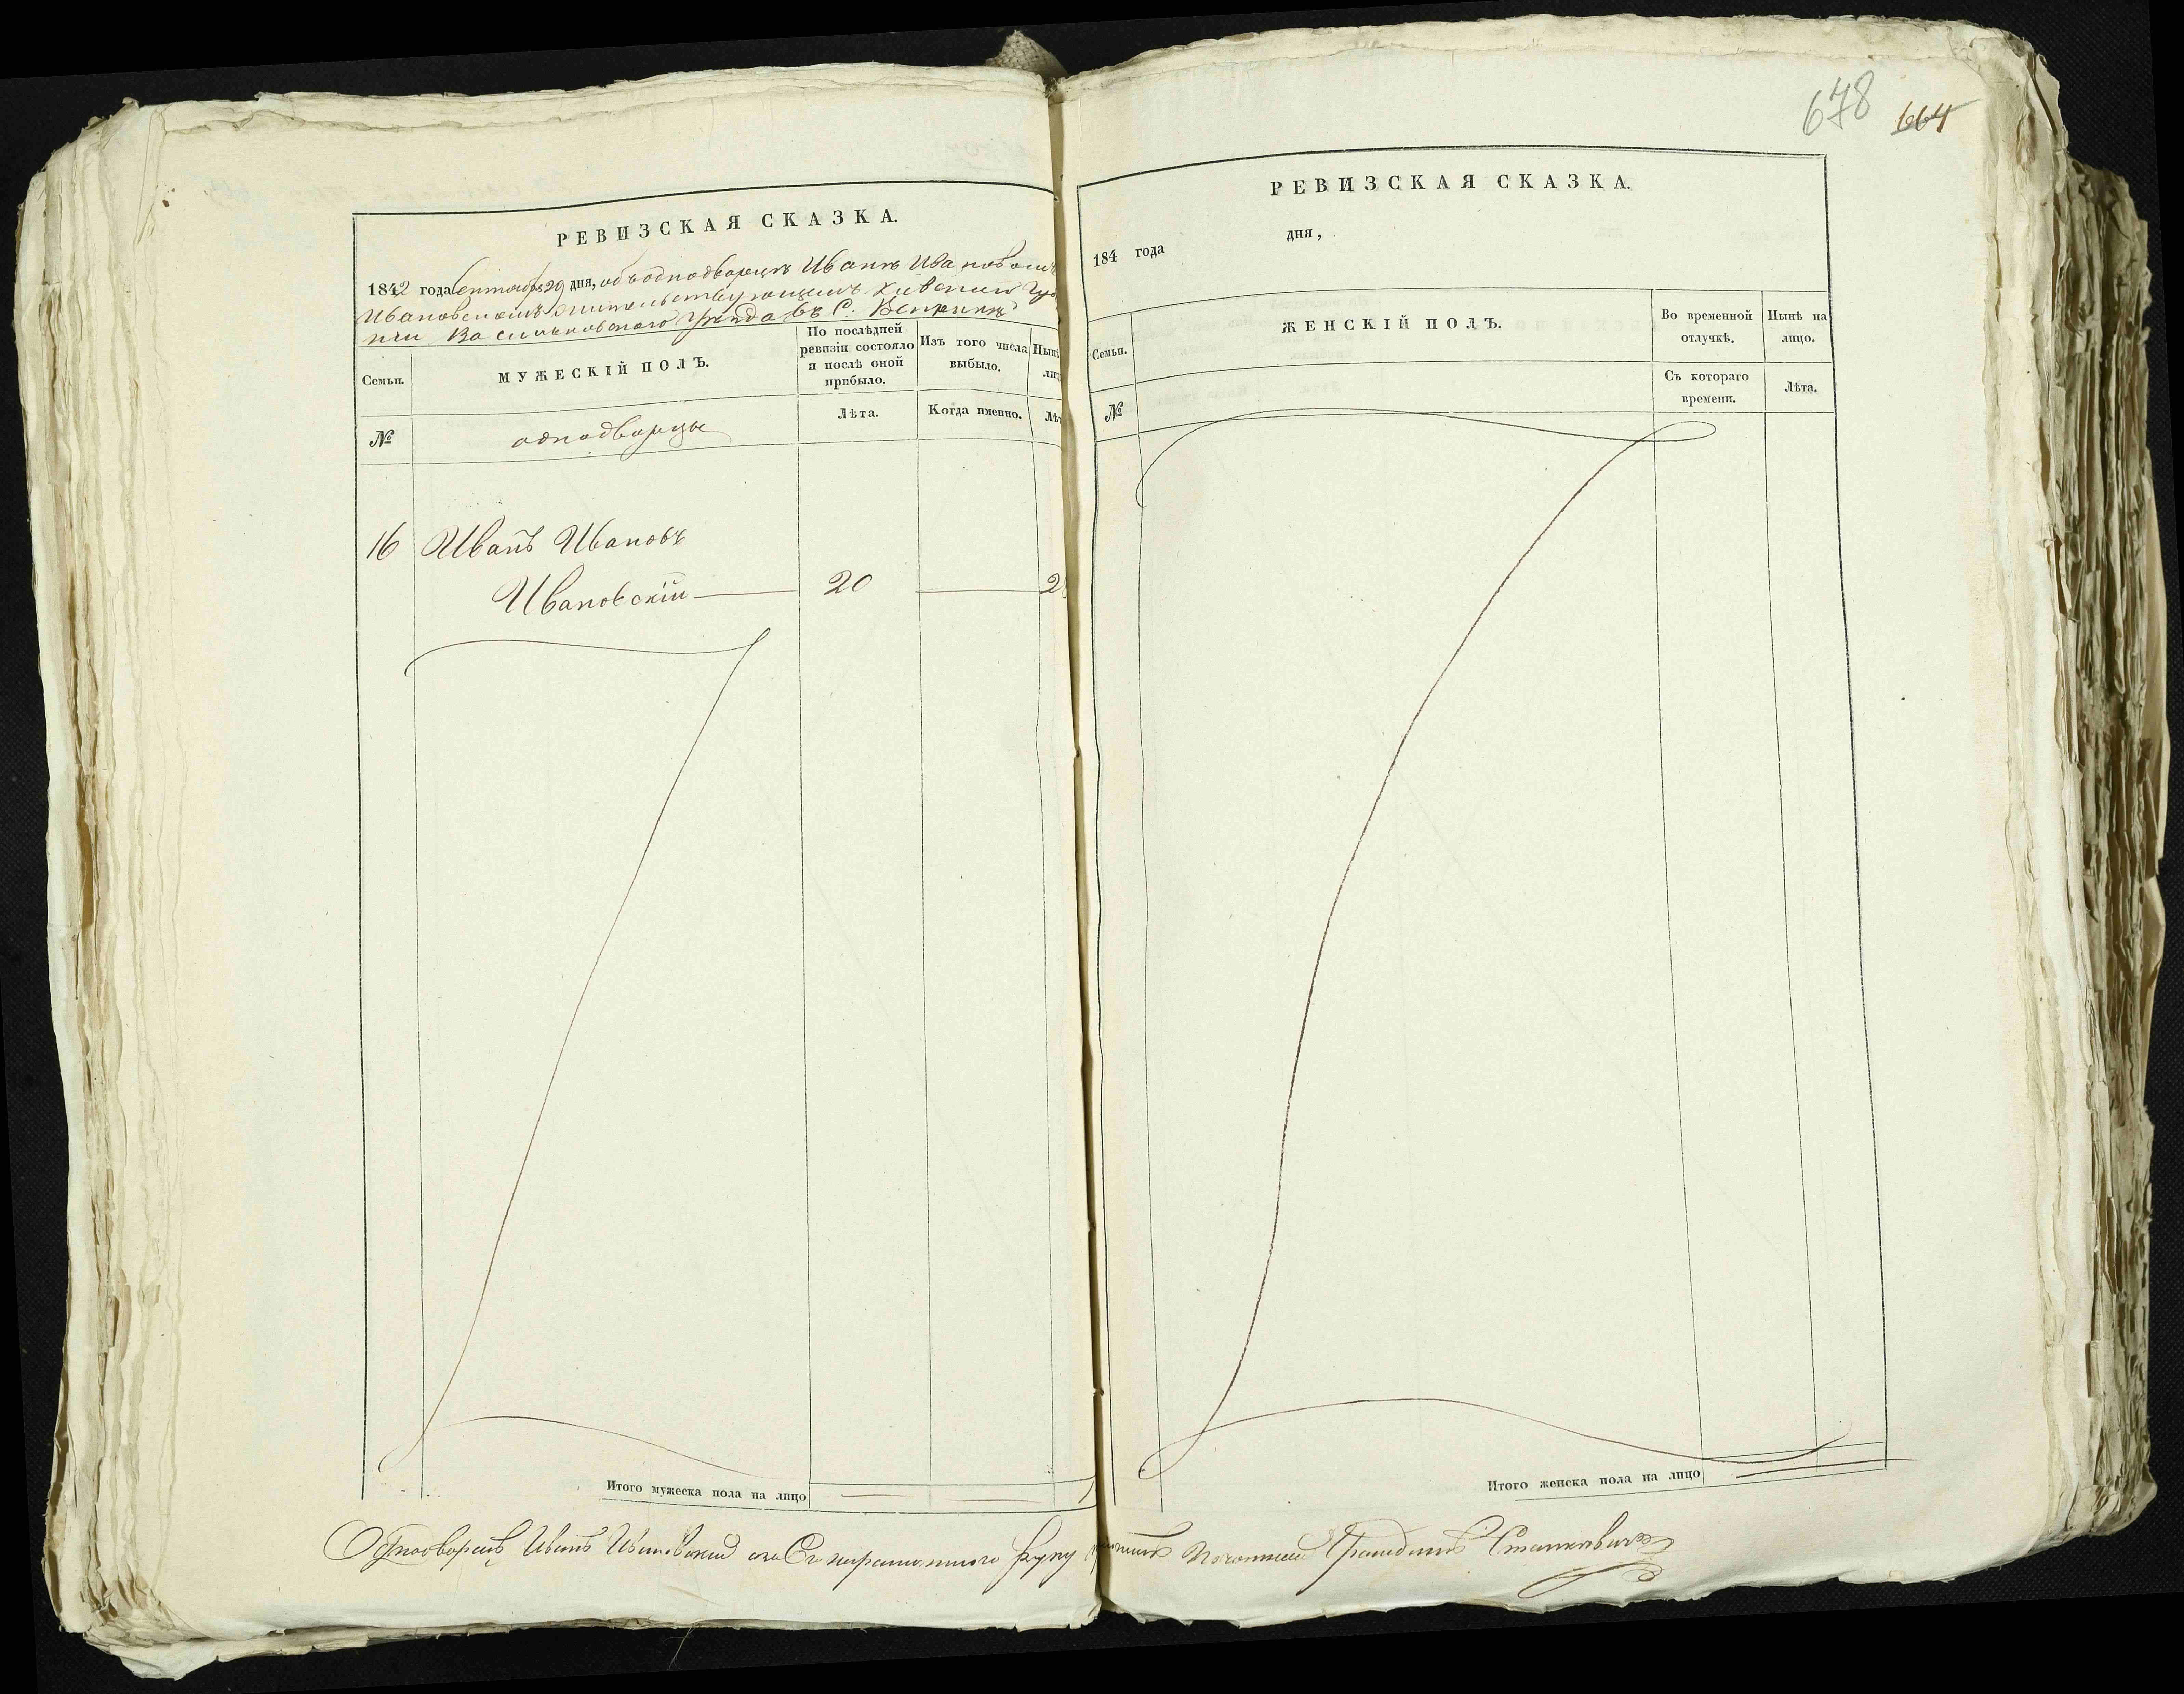 РЕВИЗСКАЯ СКАЗКА.
1842 года Сентября 29 дня, объ однодворце Иване Ивановомъ
Ивановскомъ жительствующемъ Киевской Гу
нии Васильковскаго уезда въ С.
Семьи.
МУЖЕСКІЙ ПОЛЪ.
По послѣдней ревизіи состояло и послѣ оной прибыло.
Изъ того числа выбыло.
Нынѣ
лиц
№
однодворцы
Лѣта.
Когда именно.
Лѣт
16 Иванъ Ивановъ
Ивановскій 20 2
Итого мужеска пола на лицо 1
678 664
РЕВИЗСКАЯ СКАЗКА.
184 года дня,
Семьи.
ЖЕНСКІЙ ПОЛЪ.
Во временной отлучкѣ.
Нынѣ на лицо.
№
Съ котораго времени.
Лѣта.
Итого женска пола на лицо
Однодворецъ Иванъ Ивановский а за Его неграмотного руку Почотный Гражданинъ Станкевичъ